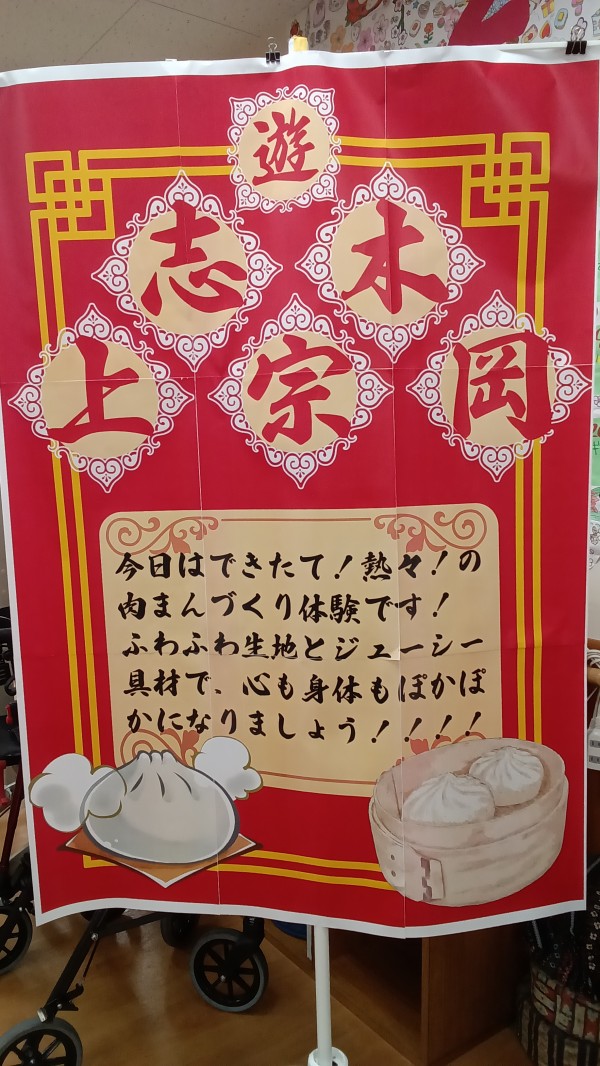 遊
志木
上宗岡
今日はできたて！熱々！の
肉まんづくり体験です！
ふわふわ生地とジェーシー
具材で、心も身体もぽかぽ
かになりましょう！！！！